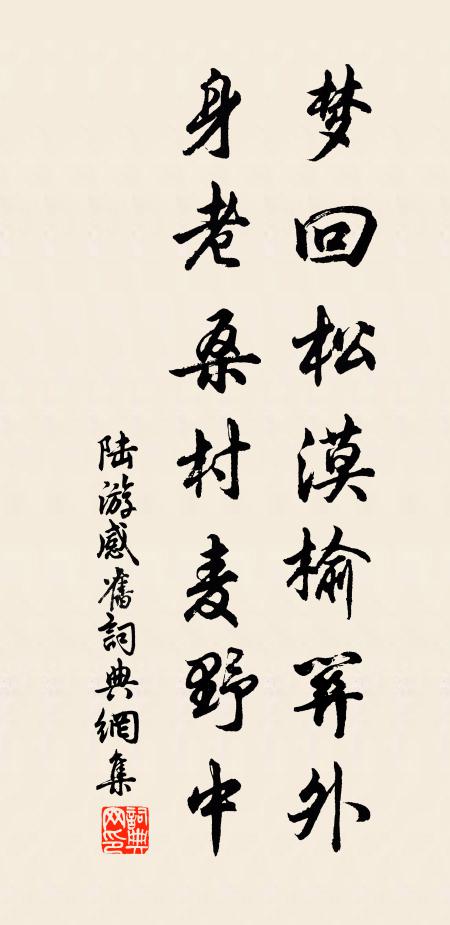 梦回松漠榆关外
身老桑村麦野中
陆游感旧詞典網集
詞典网印